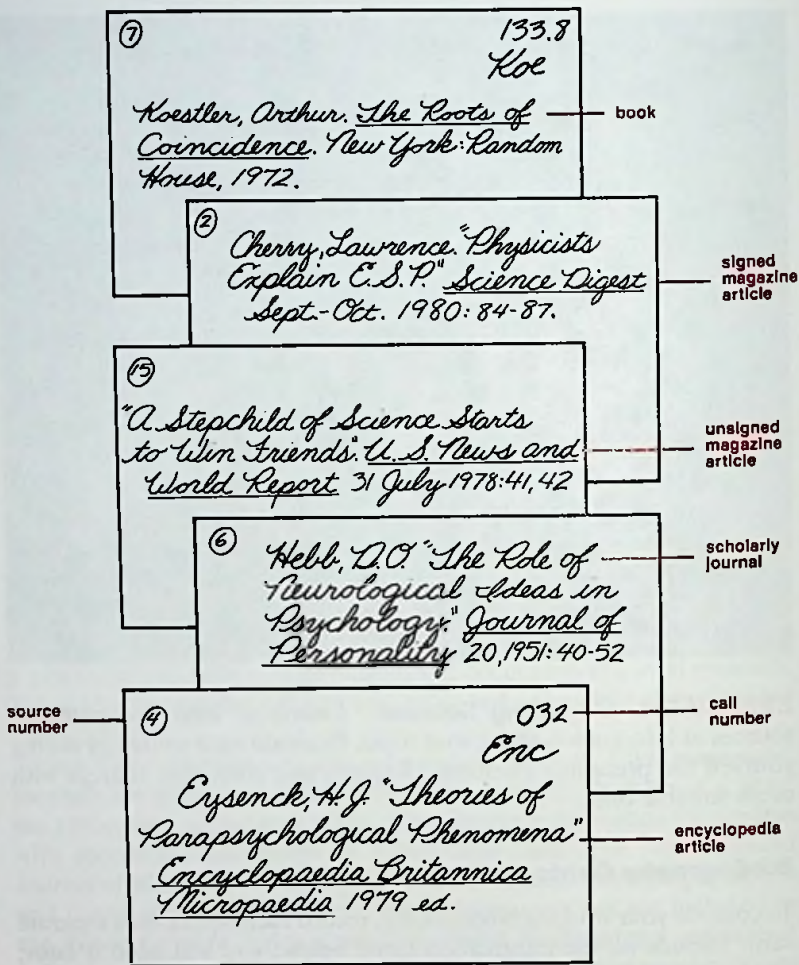 7
133.8
Koe
Koestler, Arthur. The Roots of
Coincidence. New York: Random
House, 1972.
book
2
Cherry, Lawrence. "Physicists
Explain E.S.P." Science Digest
Sept.-Oct. 1980: 84-87.
signed
magazine
article
15
"A Stepchild of Science Starts
to Win Friends". U.S. News and
World Report 31 July 1978: 41, 42
unsigned
magazine
article
6
Hebb, D.O. "The Role of
Neurological Ideas in
Psychology." Journal of
Personality 20, 1951: 40-52
scholarly
journal
source
number
4
032
Enc
call
number
Eysenck, H.J. "Theories of
Parapsychological Phenomena"
Encyclopaedia Britannica
Micropaedia 1979 ed.
encyclopedia
article